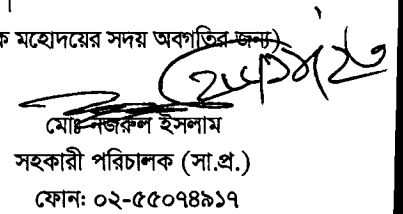 ক মহোদয়ের সদয় অবগতির জন্য)
মোঃ নজরুল ইসলাম
সহকারী পরিচালক (সা.প্র.)
ফোন: ০২-৫৫০৭৪৯১৭